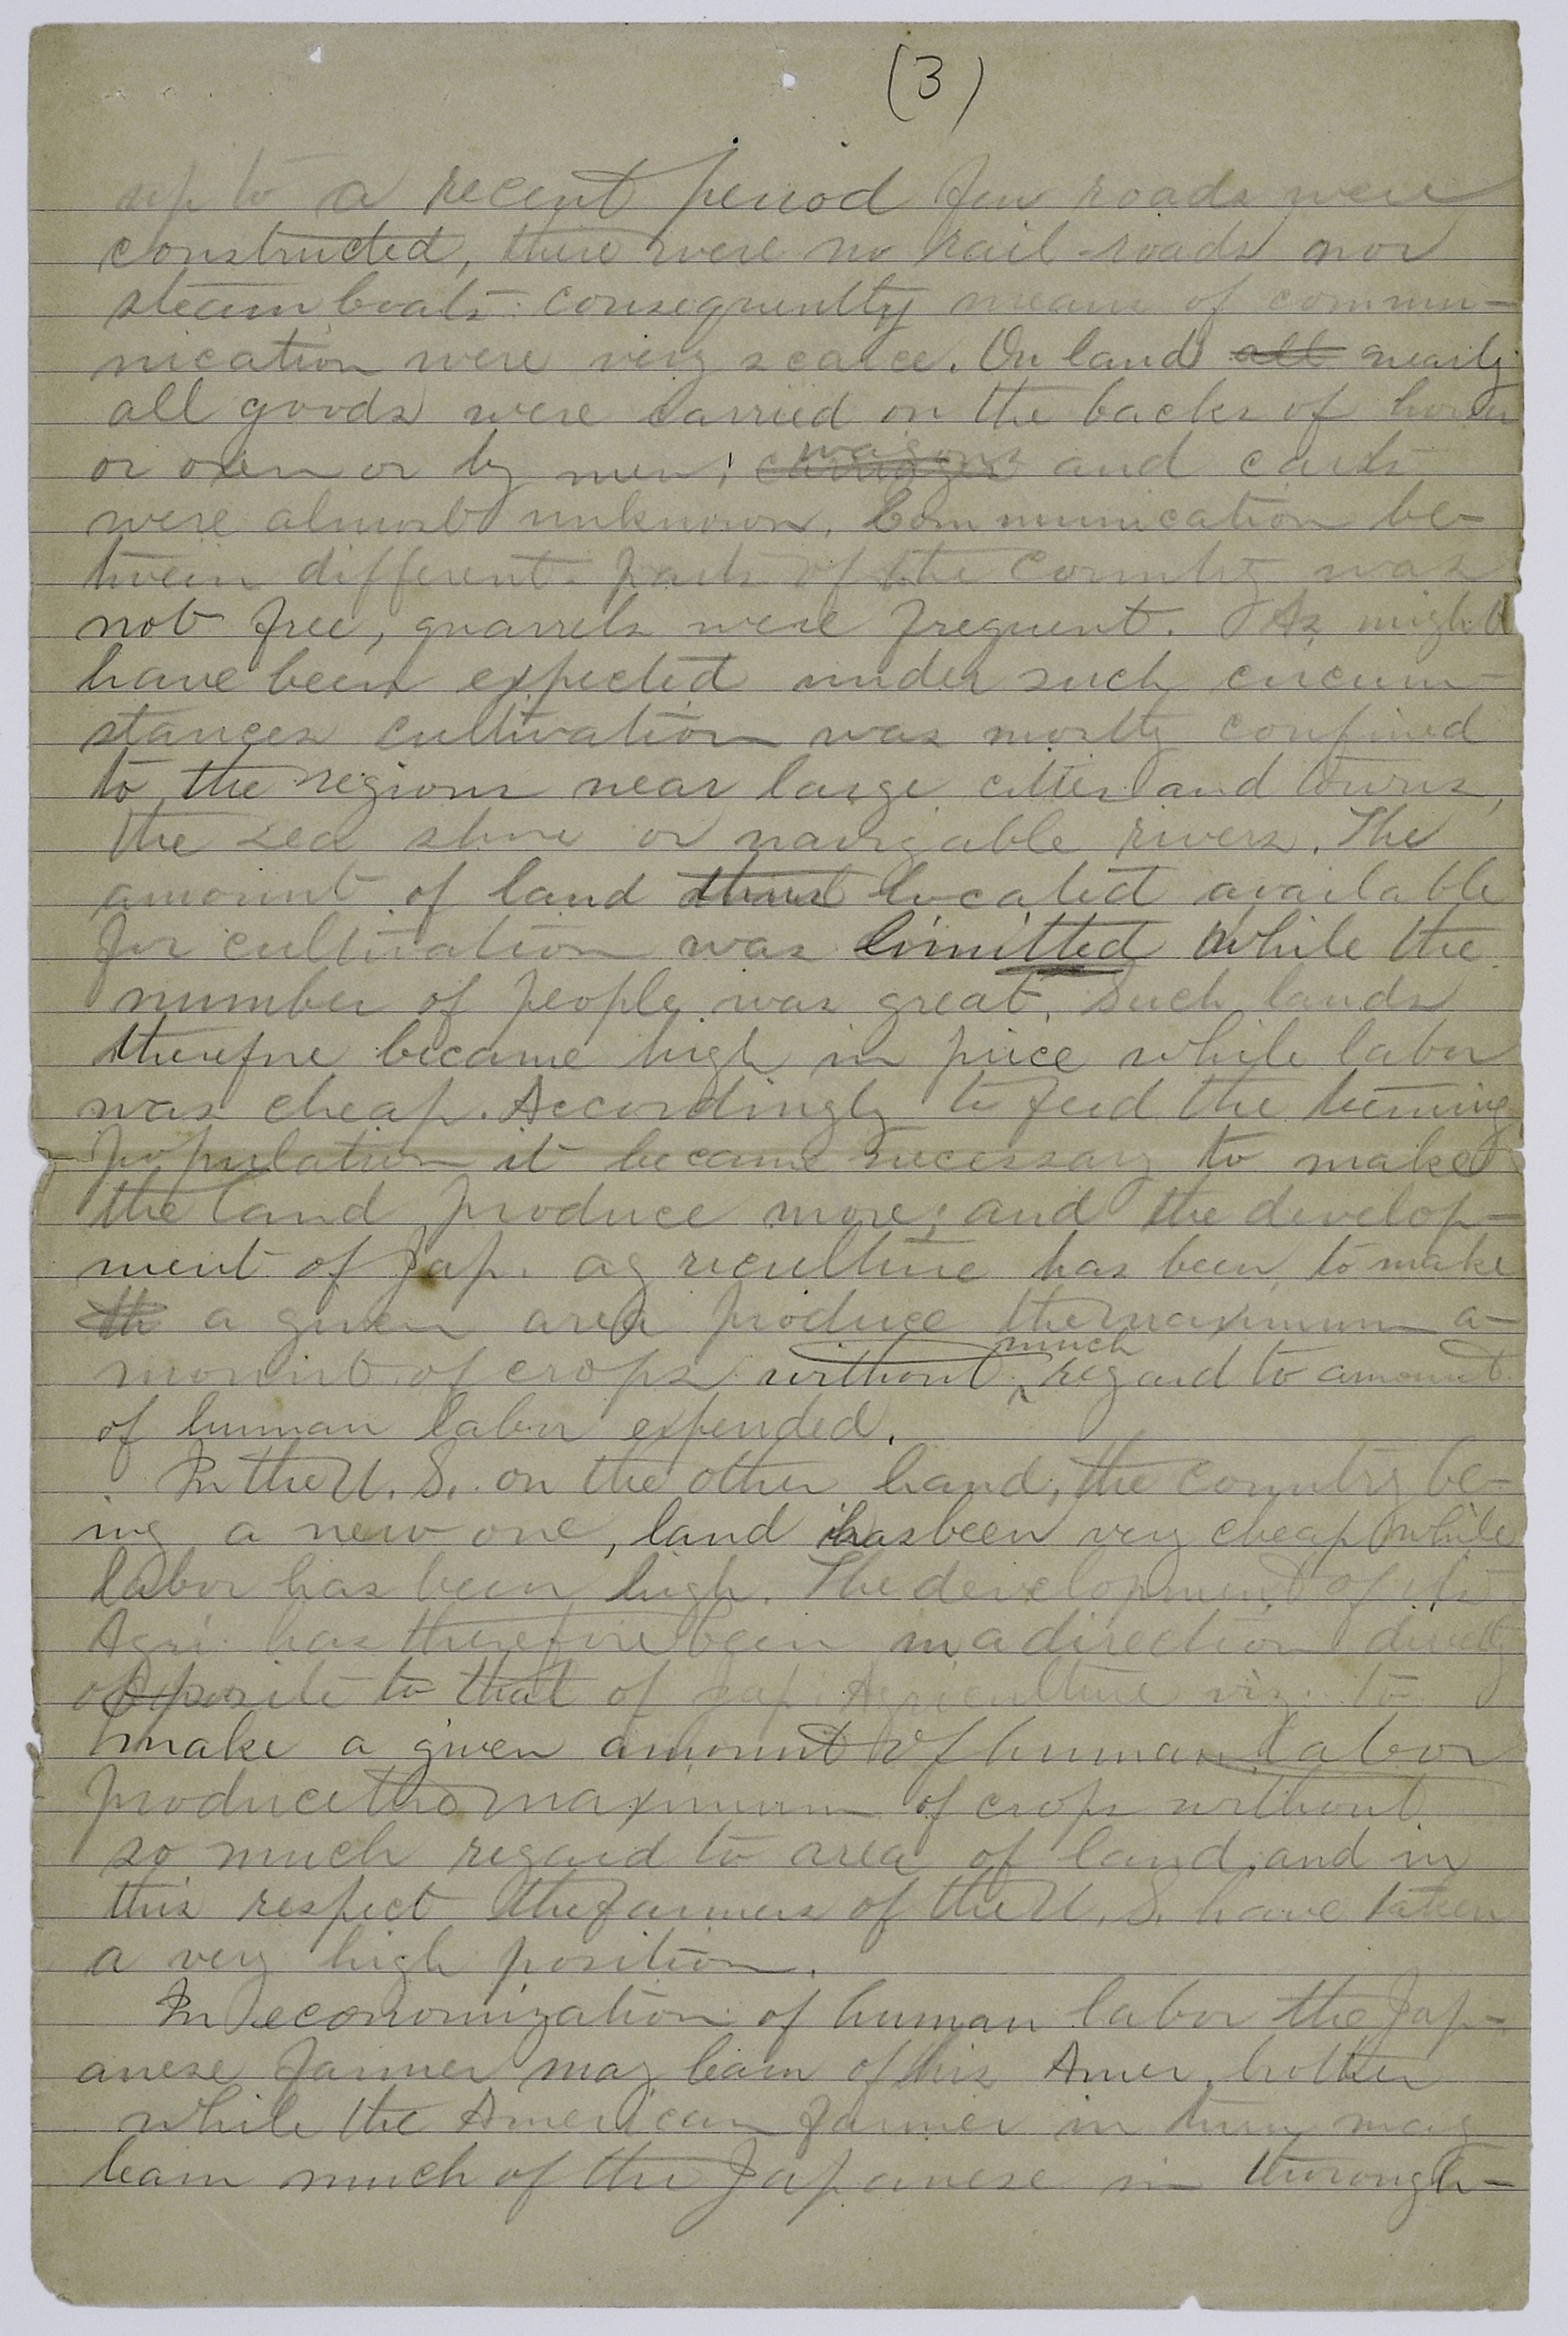 (3)
up to a recent period few roads were
constructed, there were no rail-roads nor
steam boats: consequently means of commu-
nication were very scarce. On land all nearly
all goods were carried on the backs of horses
or oxen or by men; carriages wagons and carts
were almost unknown. Communication be-
tween different parts of the country was
not free, quarrels were frequent. As might
have been expected under such circum-
stances cultivation was mostly confined
to the regions near large cities and towns,
the sea shore or navigable rivers. The
amount of land thus located available
for cultivation was limitted while the
number of people was great. Such lands
therefore became high in price while labor
was cheap. Accordingly to feed the teeming
population it became necessary to make
the land produce more; and the develop-
ment of Jap. agriculture has been to make
th a given area produce the maximum a-
mount of crops without much regard to amount
of human labor expended.
In the U. S. on the other hand, the country be-
ing a new one, land has been very cheap while
labor has been high. The development of its
Agri. has therefore been in a direction directly
opposite to that of Jap. Agriculture viz. to
make a given amount of human labor
produce the maximum of crops without
so much regard to area of land, and in
this respect the farmers of the U. S. have taken
a very high position.
In economization of human labor the Jap-
anese farmer may learn of his Amer. brother
while the American farmer in turn may
learn much of the Japanese in through-